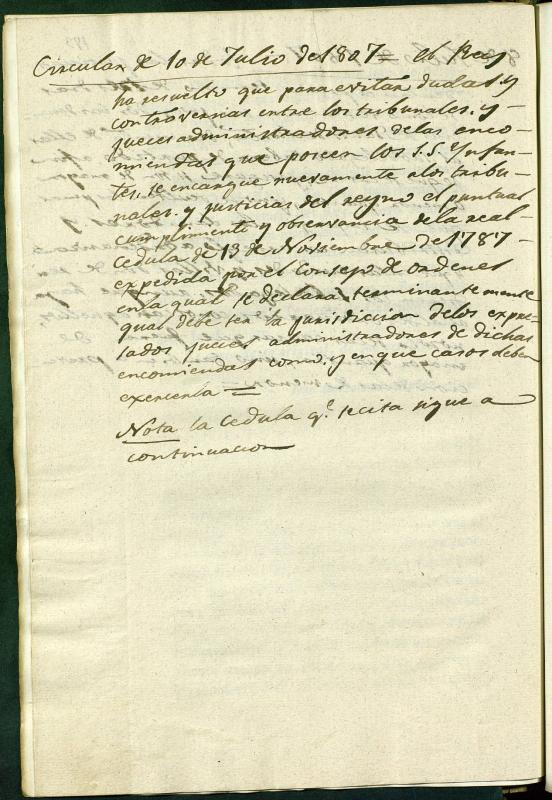 Circular de 10 de Julio de 1807 = el Rey
ha resuelto que para evitar dudas y
controversias entre los tribunales, y
jueces administradores delas enco-
miendas que poseen los S.S.ˢ Ynfan-
tes, se encargue nuevamente alos tribu-
nales, y justicias del reyno el puntual
cumplimiento y observancia dela real
cedula de 13 de Noviembre de 1787
expedida por el Consejo de ordenes
enla qual se declara terminantemente
qual debe ser la jurisdicion delos expre-
sados jueces administradores de dichas
encomiendas como, y en que casos deben
exercerla =
Nota la Cedula q.ᵉ se cita sigue a
continuacion